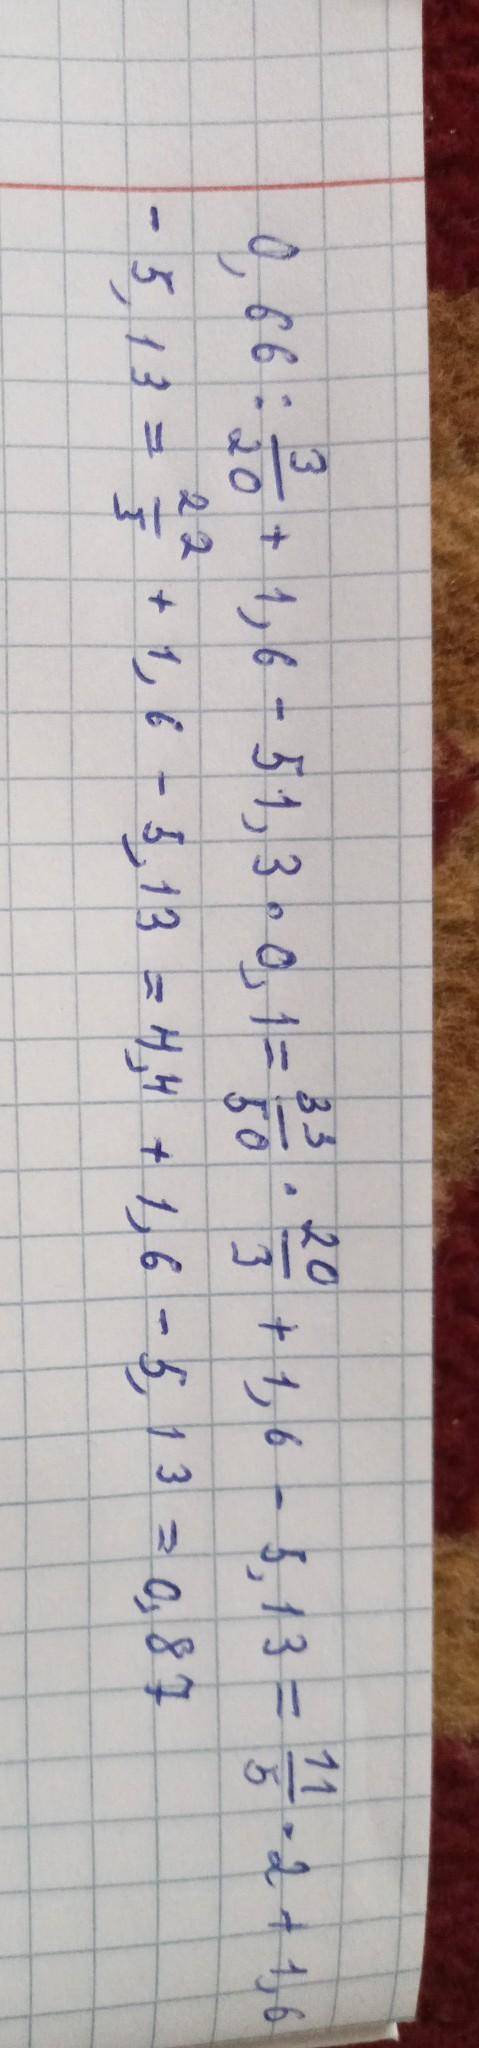 0,66 : 3/20 + 1,6 - 51,3 · 0,1 = 33/50 · 20/3 + 1,6 - 5,13 = 11/5 · 2 + 1,6
- 5,13 = 22/5 + 1,6 - 5,13 = 4,4 + 1,6 - 5,13 = 0,87